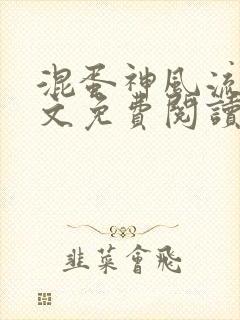 混蛋神風流
文免費閱讀
韭菜會飛